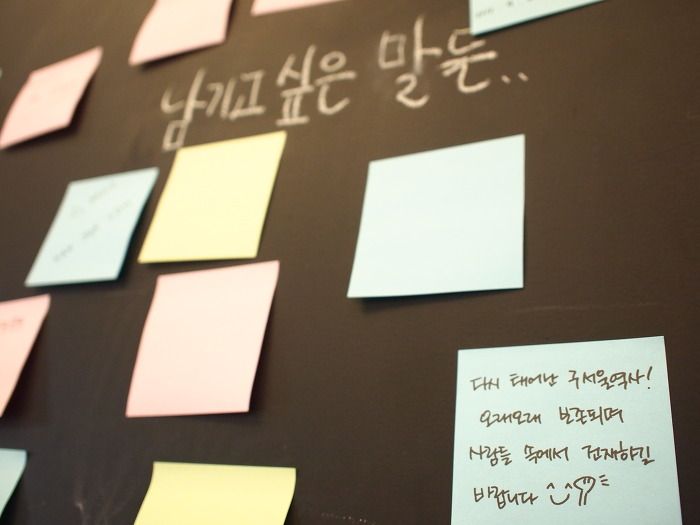 남기고 싶은 말들..
다시 태어난 구서울역사!
오래오래 보존되며
사람들 속에서 존재하길
바랍니다 ^_^